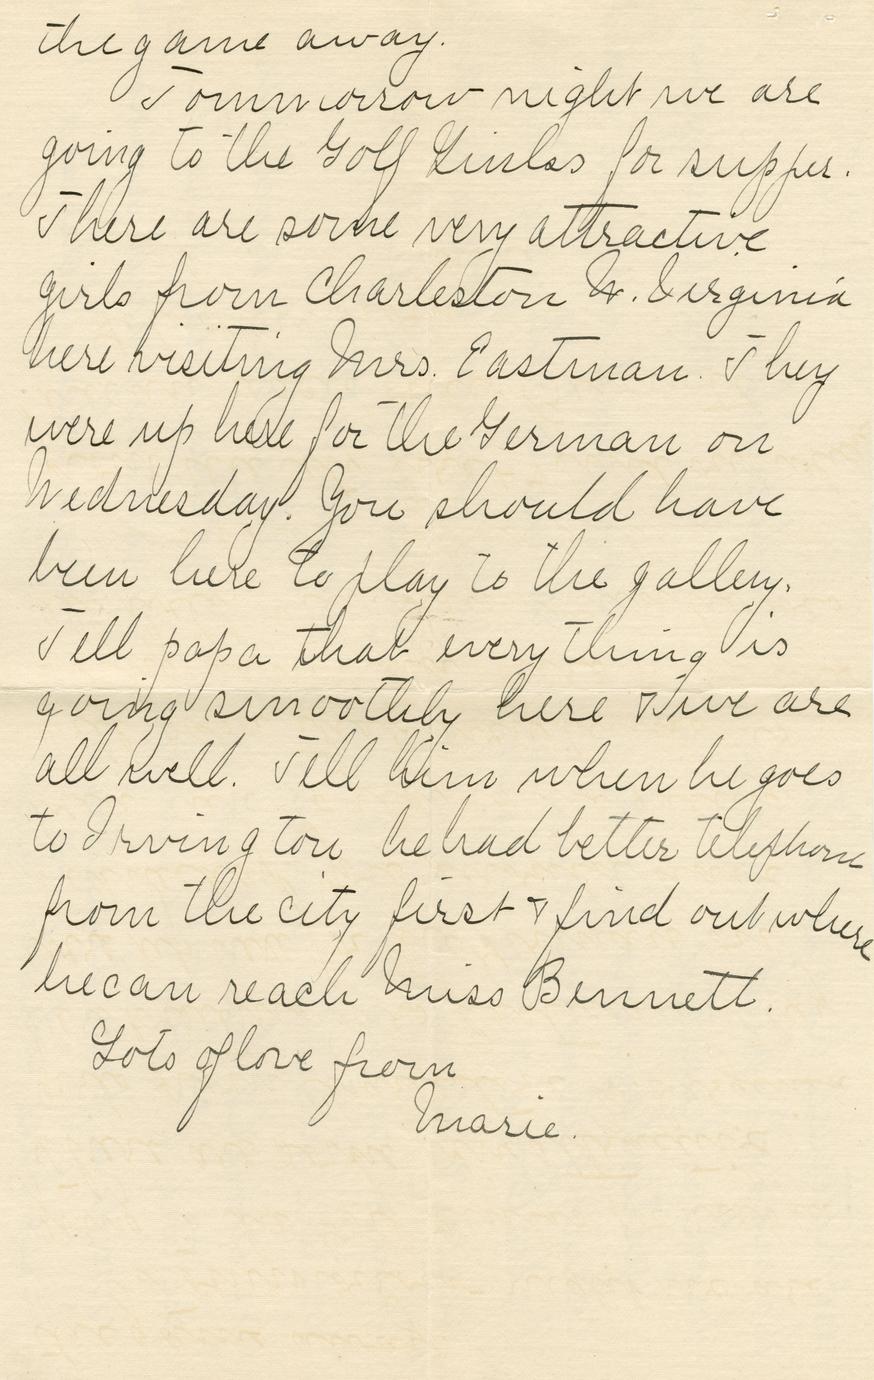 the game away.
Tommorrow night we are
going to the Golf Links for supper.
There are some very attractive
girls from Charleston W. Virginia
here visiting Mrs. Eastman. They
were up here for the German on
Wednesday. You should have
been here to play to the gallery.
Tell papa that everything is
going smoothly here & we are
all well. Tell him when he goes
to Irvington he had better telephone
from the city first & find out where
he can reach Miss Bennett.
Lots of love from
Marie.